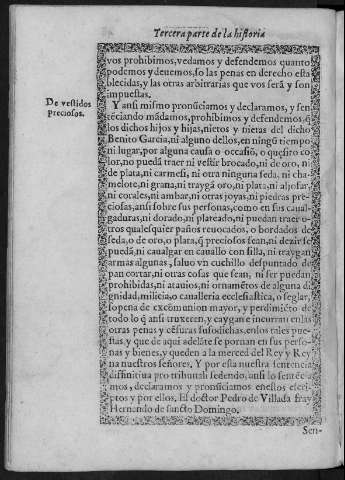 Tercera parte de la historia
vos prohibimos, vedamos y defendemos quanto
podemos y deuemos, so las penas en derecho esta
blecidas, y las otras arbitrarias que vos serã y son
impuestas.
De vestidos
preciosos.
Y ansi mismo pronũciamos y declaramos, y sen
tẽciando mãdamos, prohibimos y defendemos, q̃
los dichos hijos y hijas, nietos y nietas del dicho
Benito Garcia, ni alguno dellos, en ningũ tiempo
ni lugar, por alguna causa o occasiõ, o quesito co
lor, no puedã traer ni vestir brocado, ni de oro, ni
de plata, ni carmesi, ni otra ninguna seda, ni cha-
melote, ni grana, ni traygã oro, ni plata, ni aljofar,
ni corales, ni ambar, ni otras joyas, ni piedras pre-
ciosas, ansi sobre sus personas, como en sus caual-
gaduras, ni dorado, ni plateado, ni puedan traer o-
tros qualesquier paños reuocados, o bordados de
seda, o de oro, o plata, q̃ preciosos sean, ni dezir se
puedã, ni caualgar en cauallo con silla, ni traygan
armas algunas, saluo vn cuchillo despuntado de
pan cortar, ni otras cosas que sean, ni ser puedan
prohibidas, ni atauios, ni ornamẽtos de alguna di
gnidad, milicia, o caualleria ecclesiastica, o seglar,
so pena de excõmunion mayor, y perdimiẽto de
todo lo q̃ ansi truxeren, y caygan e incurran en las
otras penas y cẽsuras susodichas, en los tales pue-
stas, y que de aqui adelãte se pornan en sus perso-
nas y bienes, y queden a la merced del Rey y Rey
na nuestros señores. Y por esta nuestra sentencia
diffinitiua pro tribunali sedendo, ansi lo sentẽcia
mos, declaramos y pronũciamos en estos escri-
ptos y por ellos. El doctor Pedro de Villada fray
Hernando de sancto Domingo.
Sen-